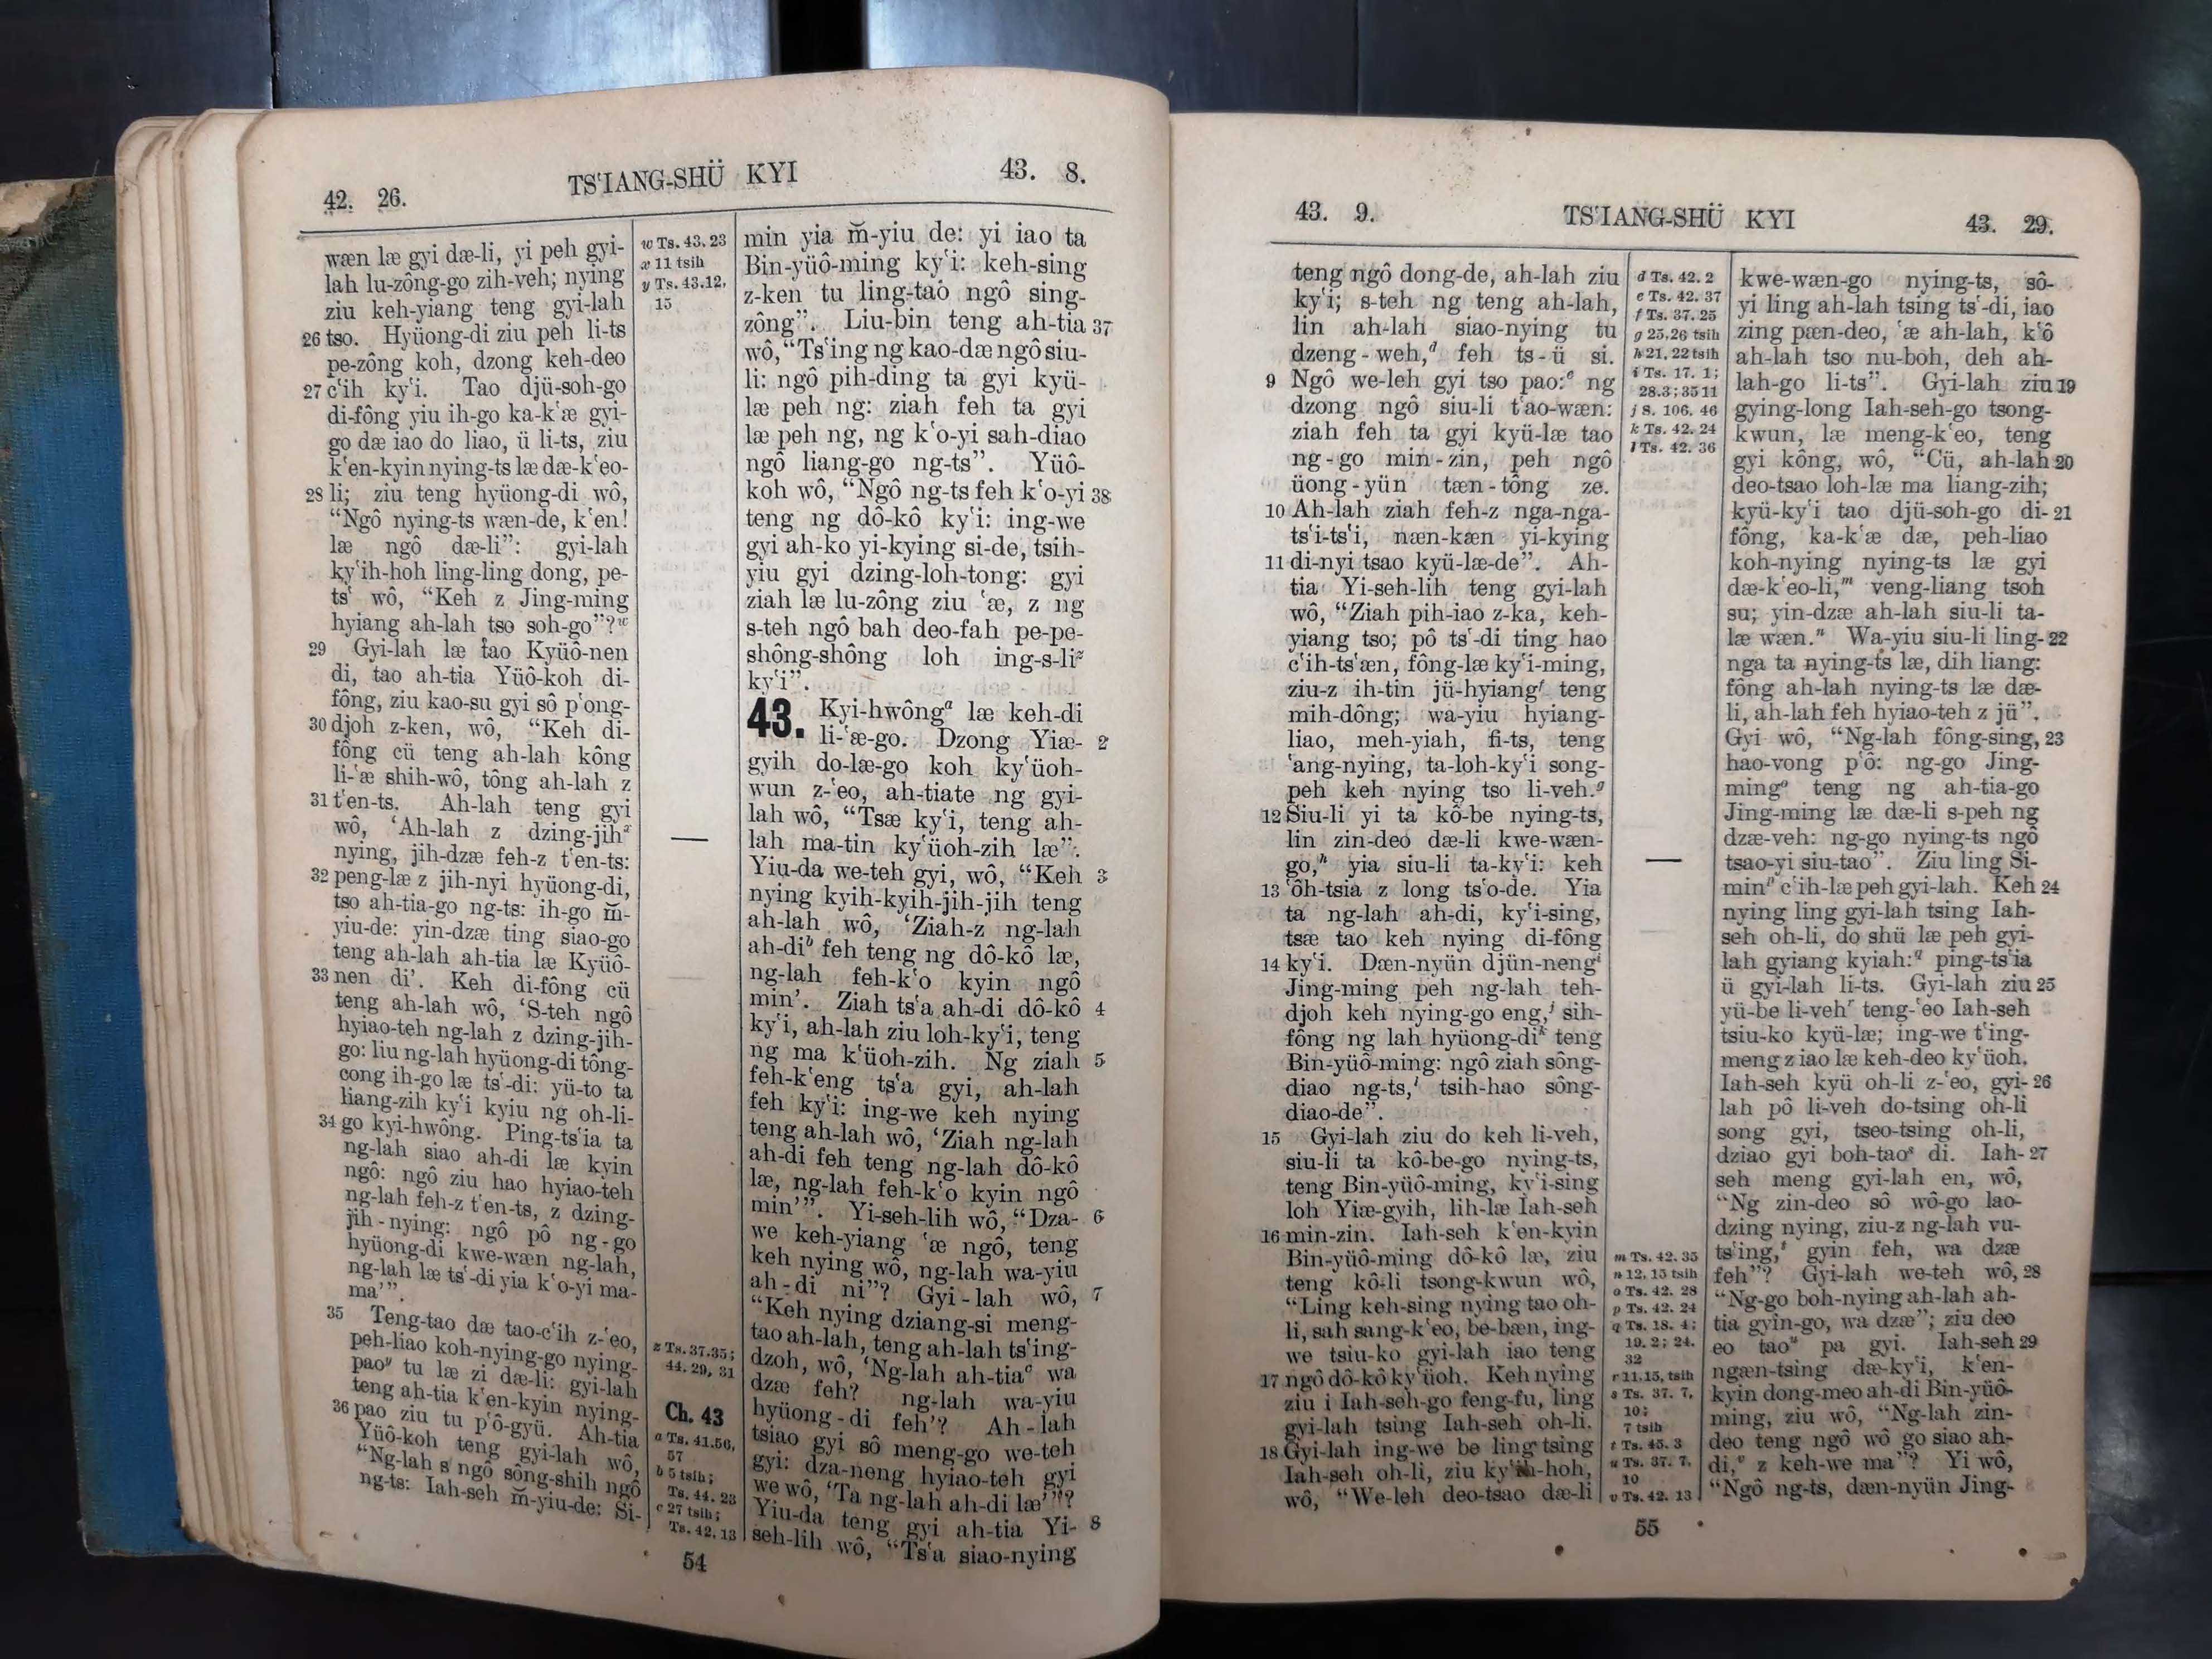 42. 26.
TS‘IANG-SHÜ KYI
43. 8.
wæn læ gyi dæ-li, yi peh gyi-
lah lu-zông-go zih-veh; nying
ziu keh-yiang teng gyi-lah
26 tso. Hyüong-di ziu peh li-ts
pe-zông koh, dzong keh-deo
27 c‘ih ky‘i. Tao djü-soh-go
di-fông yiu ih-go ka-k‘æ gyi-
go dæ iao do liao, ü li-ts, ziu
k‘en-kyin nying-ts læ dæ-k‘eo-
28 li; ziu teng hyüong-di wô,
“Ngô nying-ts wæn-de, k‘en!
læ ngô dæ-li”: gyi-lah
ky‘ih-hoh ling-ling dong, pe-
ts‘ wô, “Keh z Jing-ming
hyiang ah-lah tso soh-go”?w
29 Gyi-lah læ tao Kyüô-nen
di, tao ah-tia Yüô-koh di-
fông, ziu kao-su gyi sô p‘ong-
30 djoh z-ken, wô, “Keh di-
fông cü teng ah-lah kông
li-‘æ shih-wô, tông ah-lah z
31 t‘en-ts. Ah-lah teng gyi
wô, ‘Ah-lah z dzing-jihx
nying, jih-dzæ feh-z t‘en-ts:
32 peng-læ z jih-nyi hyüong-di,
tso ah-tia-go ng-ts: ih-go m̆-
yiu-de: yin-dzæ ting siao-go
teng ah-lah ah-tia læ Kyüô-
33 nen di’. Keh di-fông cü
teng ah-lah wô, ‘S-teh ngô
hyiao-teh ng-lah z dzing-jih-
go: liu ng-lah hyüong-di tông-
cong ih-go læ ts‘-di: yü-to ta
liang-zih ky‘i kyiu ng oh-li-
34 go kyi-hwông. Ping-ts‘ia ta
ng-lah siao ah-di læ kyin
ngô: ngô ziu hao hyiao-teh
ng-lah feh-z t‘en-ts, z dzing-
jih-nying: ngô pô ng-go
hyüong-di kwe-wæn ng-lah,
ng-lah læ ts‘-di yia k‘o-yi ma-
ma’”.
35 Teng-tao dæ tao-c‘ih z-‘eo,
peh-liao koh-nying-go nying-
paoy tu læ zi dæ-li: gyi-lah
teng ah-tia k‘en-kyin nying-
36 pao ziu tu p‘ô-gyü. Ah-tia
Yüô-koh teng gyi-lah wô,
“Ng-lah s ngô sông-shih ngô
ng-ts: Iah-seh m̆-yiu-de: Si-
w Ts. 43.23
x 11 tsih
y Ts. 43.12,
15
z Ts. 37.35;
44. 29, 31
Ch. 43
a Ts. 41.56,
57
b 5 tsih;
Ts. 44. 23
c 27 tsih;
Ts. 42. 13
min yia m̆-yiu de: yi iao ta
Bin-yüô-ming ky‘i: keh-sing
z-ken tu ling-tao ngô sing-
zông”. Liu-bin teng ah-tia 37
wô, “Ts‘ing ng kao-dæ ngô siu-
li: ngô pih-ding ta gyi kyü-
læ peh ng: ziah feh ta gyi
læ peh ng, ng k‘o-yi sah-diao
ngô liang-go ng-ts”. Yüô-
koh wô, “Ngô ng-ts feh k‘o-yi 38
teng ng dô-kô ky‘i: ing-we
gyi ah-ko yi-kying si-de, tsih-
yiu gyi dzing-loh-tong: gyi
ziah læ lu-zông ziu ‘æ, z ng
s-teh ngô bah deo-fah pe-pe-
shông-shông loh ing-s-liz
ky‘i”.
43. Kyi-hwônga læ keh-di
li-‘æ-go. Dzong Yiæ- 2
gyih do-læ-go koh ky‘üoh-
wun z-‘eo, ah-tiate ng gyi-
lah wô, “Tsæ ky‘i, teng ah-
lah ma-tin ky‘üoh-zih læ”.
Yiu-da we-teh gyi, wô, “Keh 3
nying kyih-kyih-jih-jih teng
ah-lah wô, ‘Ziah-z ng-lah
ah-dib feh teng ng dô-kô læ,
ng-lah feh-k‘o kyin ngô
min’. Ziah ts‘a ah-di dô-kô 4
ky‘i, ah-lah ziu loh-ky‘i, teng
ng ma k‘üoh-zih. Ng ziah 5
feh-k‘eng ts‘a gyi, ah-lah
feh ky‘i: ing-we keh nying
teng ah-lah wô, ‘Ziah ng-lah
ah-di feh teng ng-lah dô-kô
læ, ng-lah feh-k‘o kyin ngô
min’”. Yi-seh-lih wô, “Dza- 6
we keh-yiang ‘æ ngô, teng
keh nying wô, ng-lah wa-yiu
ah-di ni”? Gyi-lah wô, 7
“Keh nying dziang-si meng-
tao ah-lah, teng ah-lah ts‘ing-
dzoh, wô, ‘Ng-lah ah-tiac wa
dzæ feh? ng-lah wa-yiu
hyüong-di feh’? Ah-lah
tsiao gyi sô meng-go we-teh
gyi: dza-neng hyiao-teh gyi
we wô, ‘Ta ng-lah ah-di læ’”?
Yiu-da teng gyi ah-tia Yi- 8
seh-lih wô, “Ts‘a siao-nying
54
43. 9.
TS‘IANG-SHÜ KYI
43. 29.
teng ngô dong-de, ah-lah ziu
ky‘i; s-teh ng teng ah-lah,
lin ah-lah siao-nying tu
dzeng-weh,d feh ts-ü si.
9 Ngô we-leh gyi tso pao:e ng
dzong ngô siu-li t‘ao-wæn:
ziah feh ta gyi kyü-læ tao
ng-go min-zin, peh ngô
üong-yün tæn-tông ze.
10 Ah-lah ziah feh-z nga-nga-
ts‘i-ts‘i, næn-kæn yi-kying
11 di-nyi tsao kyü-læ-de”. Ah-
tia Yi-seh-lih teng gyi-lah
wô, “Ziah pih-iao z-ka, keh-
yiang tso; pô ts‘-di ting hao
c‘ih-ts‘æn, fông-læ ky‘i-ming,
ziu-z ih-tin jü-hyiangf teng
mih-dông; wa-yiu hyiang-
liao, meh-yiah, fi-ts, teng
‘ang-nying, ta-loh-ky‘i song-
peh keh nying tso li-veh.g
12 Siu-li yi ta kô-be nying-ts,
lin zin-deo dæ-li kwe-wæn-
go,h yia siu-li ta-ky‘i: keh
13 ‘ôh-tsia z long ts‘o-de. Yia
ta ng-lah ah-di, ky‘i-sing,
tsæ tao keh nying di-fông
14 ky‘i. Dæn-nyün djün-nengi
Jing-ming peh ng-lah teh-
djoh keh nying-go eng,j sih-
fông ng lah hyüong-dik teng
Bin-yüô-ming: ngô ziah sông-
diao ng-ts,l tsih-hao sông-
diao-de”.
15 Gyi-lah ziu do keh li-veh,
siu-li ta kô-be-go nying-ts,
teng Bin-yüô-ming, ky‘i-sing
loh Yiæ-gyih, lih-læ Iah-seh
16 min-zin. Iah-seh k‘en-kyin
Bin-yüô-ming dô-kô læ, ziu
teng kô-li tsong-kwun wô,
“Ling keh-sing nying tao oh-
li, sah sang-k‘eo, be-bæn, ing-
we tsiu-ko gyi-lah iao teng
17 ngô dô-kô ky‘üoh. Keh nying
ziu i Iah-seh-go feng-fu, ling
gyi-lah tsing Iah-seh oh-li.
18 Gyi-lah ing-we be ling tsing
Iah-seh oh-li, ziu ky‘ih-hoh,
wô, “We-leh deo-tsao dæ-li
d Ts. 42. 2
e Ts. 42. 37
f Ts. 37. 25
g 25,26 tsih
h 21, 22 tsih
i Ts. 17. 1;
28.3; 35 11
j S. 106. 46
k Ts. 42. 24
l Ts. 42. 36
m Ts. 42. 35
n 12, 15 tsih
o Ts. 42. 28
p Ts. 42. 24
q Ts. 18. 4;
19. 2; 24.
32
r 11.15, tsih
s Ts. 37. 7,
10;
7 tsih
t Ts. 45. 3
u Ts. 37. 7,
10
v Ts. 42. 13
kwe-wæn-go nying-ts, sô-
yi ling ah-lah tsing ts‘-di, iao
zing pæn-deo, ‘æ ah-lah, k‘ô
ah-lah tso nu-boh, deh ah-
lah-go li-ts”. Gyi-lah ziu 19
gying-long Iah-seh-go tsong-
kwun, læ meng-k‘eo, teng
gyi kông, wô, “Cü, ah-lah 20
deo-tsao loh-læ ma liang-zih;
kyü-ky‘i tao djü-soh-go di- 21
fông, ka-k‘æ dæ, peh-liao
koh-nying nying-ts læ gyi
dæ-k‘eo-li,m veng-liang tsoh
su; yin-dzæ ah-lah siu-li ta-
læ wæn.n Wa-yiu siu-li ling- 22
nga ta nying-ts læ, dih liang:
fông ah-lah nying-ts læ dæ-
li, ah-lah feh hyiao-teh z jü”.
Gyi wô, “Ng-lah fông-sing, 23
hao-vong p‘ô: ng-go Jing-
mingo teng ng ah-tia-go
Jing-ming læ dæ-li s-peh ng
dzæ-veh: ng-go nying-ts ngô
tsao-yi siu-tao”. Ziu ling Si-
minp c‘ih-læ peh gyi-lah. Keh 24
nying ling gyi-lah tsing Iah-
seh oh-li, do shü læ peh gyi-
lah gyiang kyiah:q ping-ts‘ia
ü gyi-lah li-ts. Gyi-lah ziu 25
yü-be li-vehr teng-‘eo Iah-seh
tsiu-ko kyü-læ; ing-we t‘ing-
meng z iao læ keh-deo ky‘üoh.
Iah-seh kyü oh-li z-‘eo, gyi- 26
lah pô li-veh do-tsing oh-li
song gyi, tseo-tsing oh-li,
dziao gyi boh-taos di. Iah- 27
seh meng gyi-lah en, wô,
“Ng zin-deo sô wô-go lao-
dzing nying, ziu-z ng-lah vu-
ts‘ing,t gyin feh, wa dzæ
feh”? Gyi-lah we-teh wô, 28
“Ng-go boh-nying ah-lah ah-
tia gyin-go, wa dzæ”; ziu deo
eo taou pa gyi. Iah-seh 29
ngæn-tsing dæ-ky‘i, k‘en-
kyin dong-meo ah-di Bin-yüô-
ming, ziu wô, “Ng-lah zin-
deo teng ngô wô go siao ah-
di,v z keh-we ma”? Yi wô,
“Ngô ng-ts, dæn-nyün Jing-
55